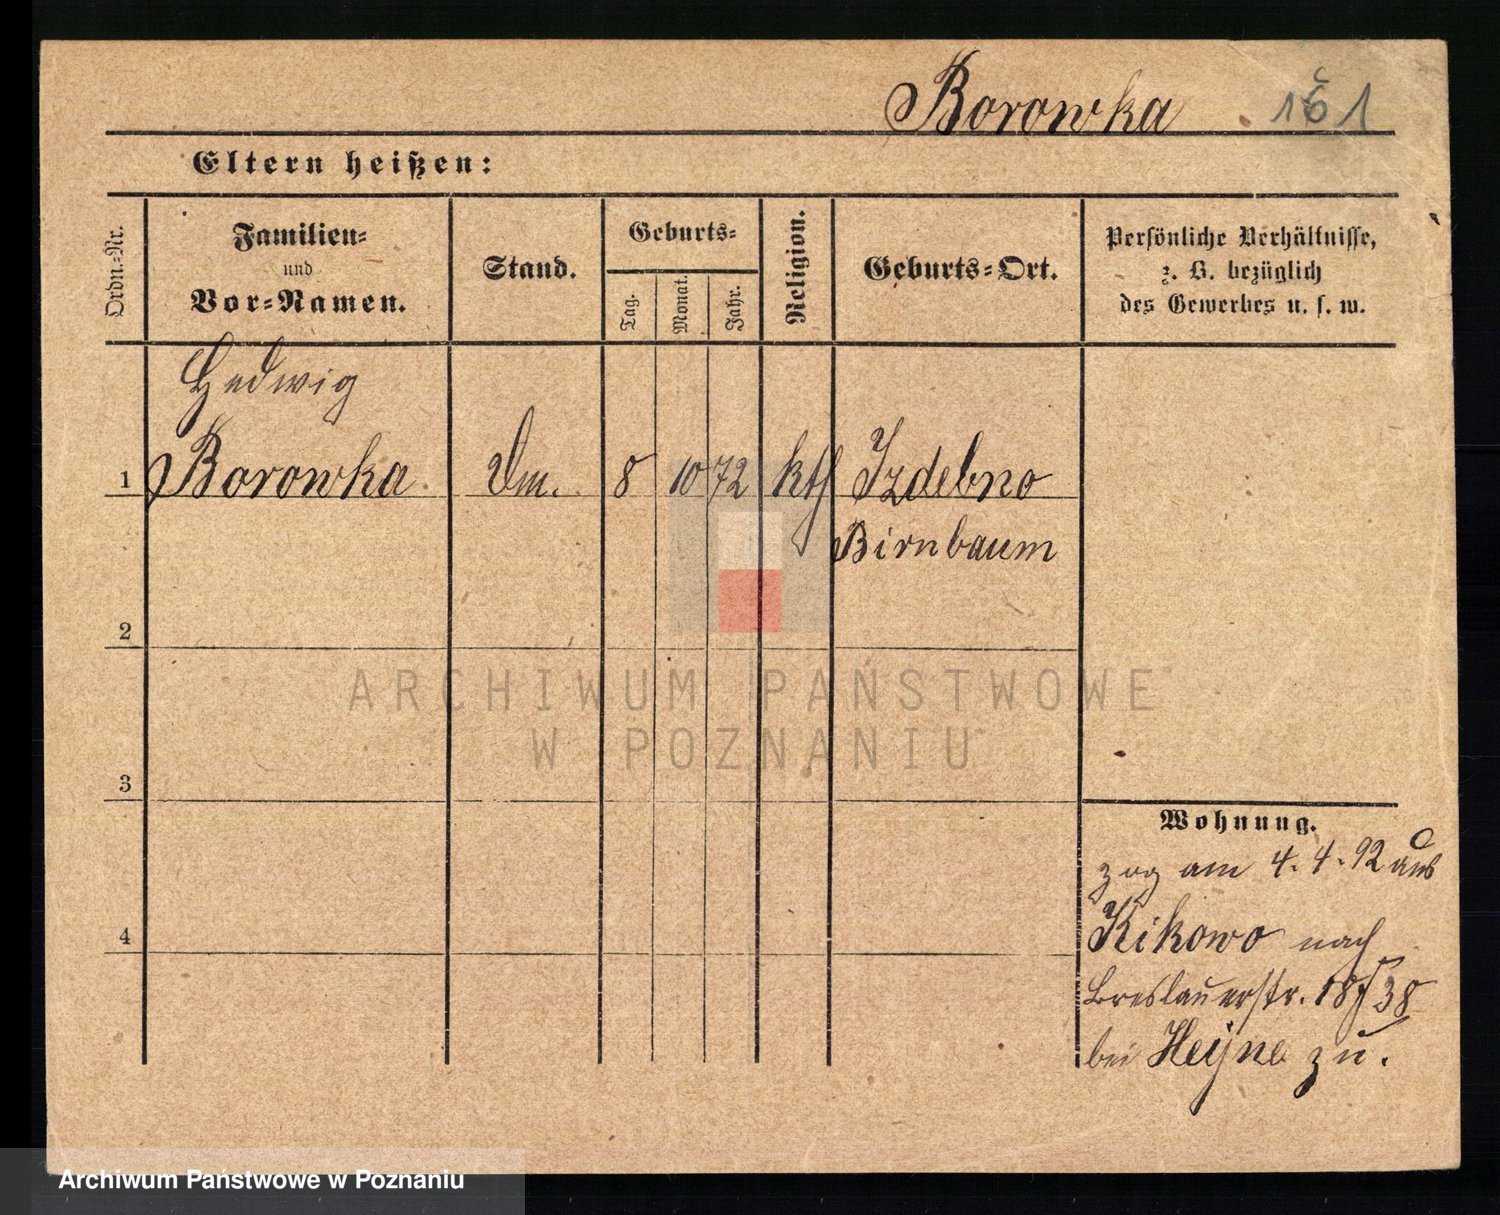 Borowka 161
Eltern heißen:
Ordn.-Nr.
Familien-
und
Vor-Namen.
Stand.
Geburts-
Tag.
Monat.
Jahr.
Religion.
Geburts-Ort.
Persönliche Verhältnisse,
z. B. bezüglich
des Gewerbes u. s. w.
Hedwig
1 Borowka Dm. 8 10 72 kth Izdebno
Birnbaum
2
3
4
ARCHIWUM PAŃSTWOWE
W POZNANIU
Wohnung.
zog am 4. 4. 92 aus
Kikowo nach
Breslauerstr. 38
bei Heyne zu.
Archiwum Państwowe w Poznaniu